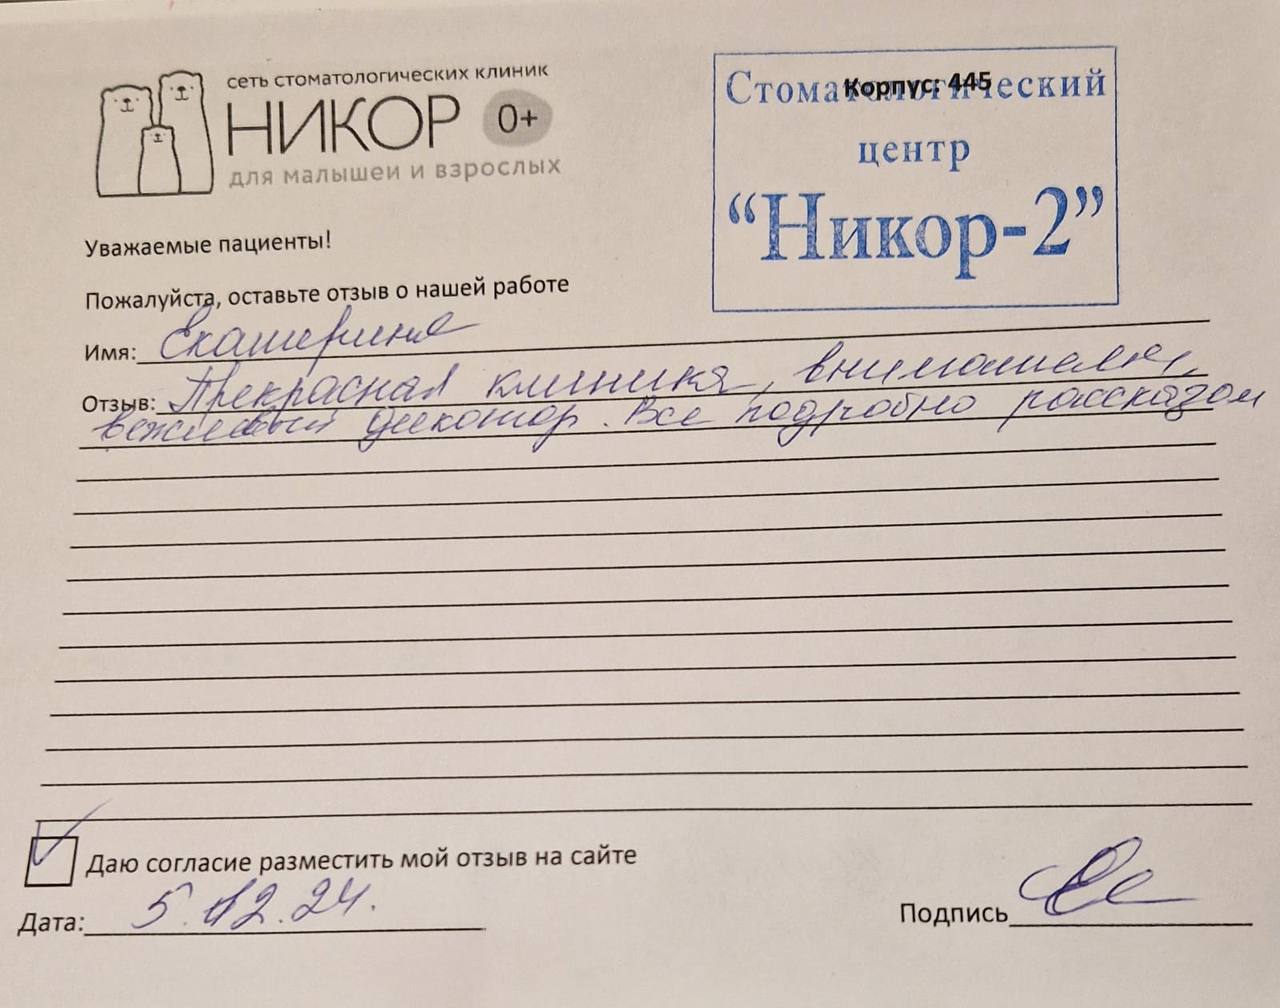 сеть стоматологических клиник
НИКОР 0+
для малышей и взрослых
Корпус: 445
Стоматологический
центр
“Никор-2”
Уважаемые пациенты!
Пожалуйста, оставьте отзыв о нашей работе
Имя: Екатерина
Отзыв: Прекрасная клиника, вниматель,
вежливый докотор. Все подробно рассказал
Даю согласие разместить мой отзыв на сайте
Дата: 5.12.24.
Подпись